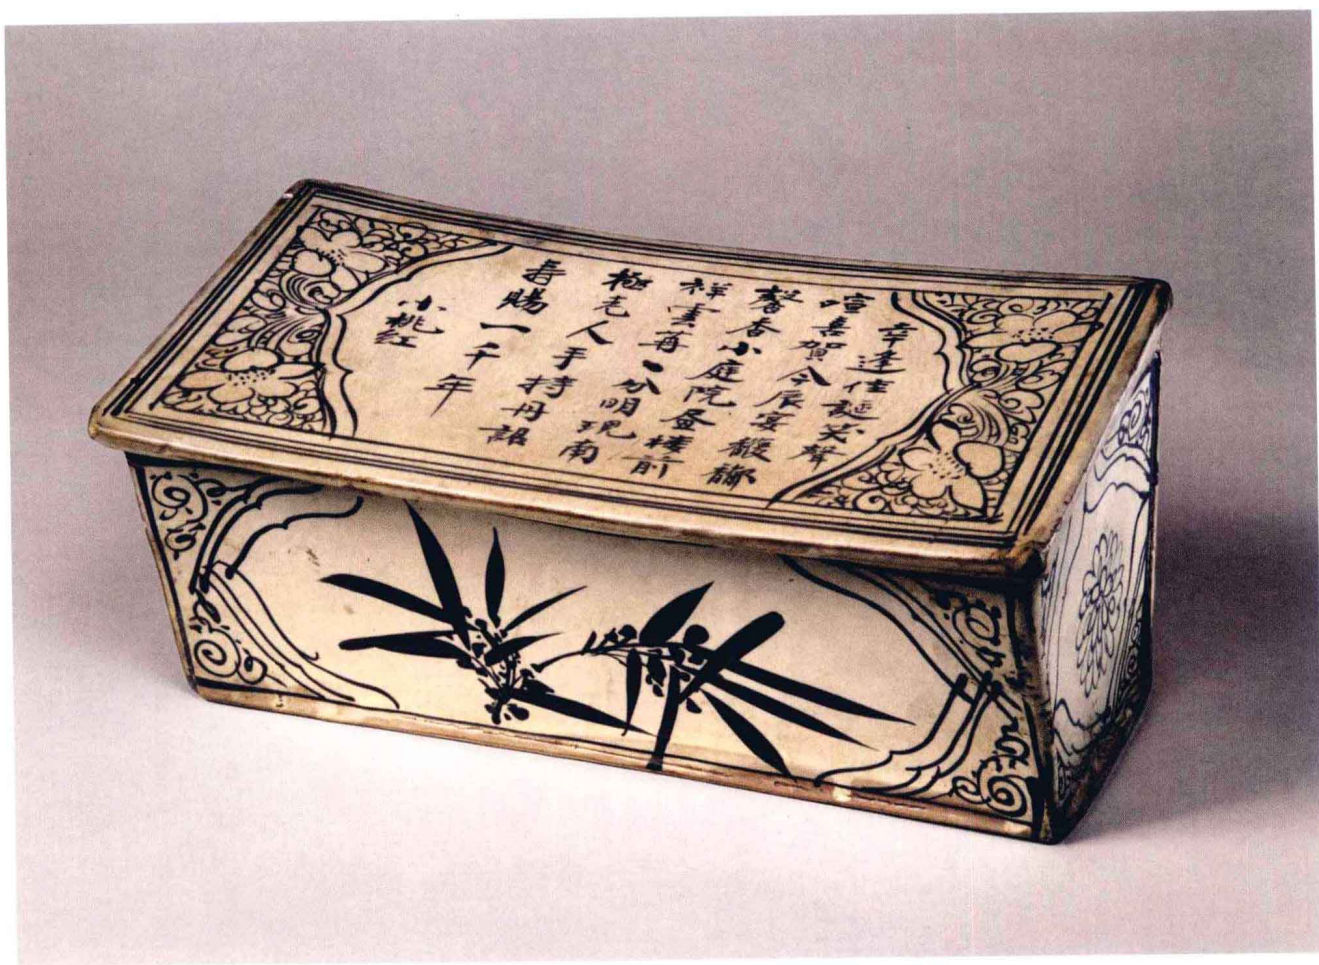 幸逢佳誕笑聲
喧喜賀今辰宴馥
馨香小庭院畫樓前
祥雲冉〻分明現南
極老人手持丹詔
壽賜一千年
小桃紅